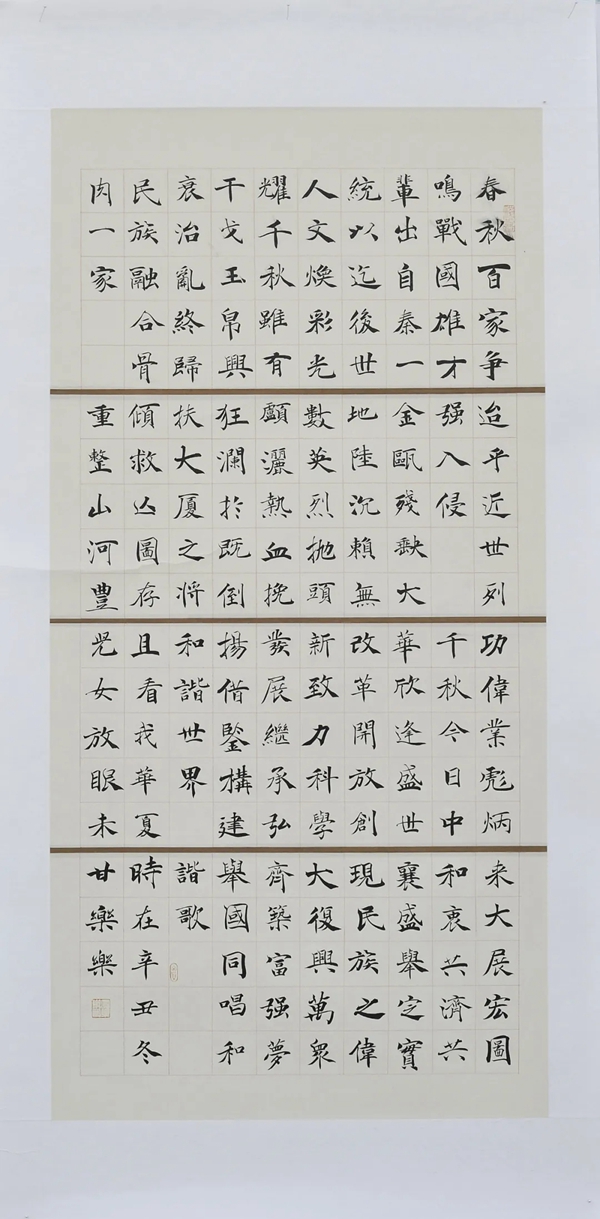 春秋百家争
鳴戰國雄才
輩出自秦一
統以迄後世
人文煥彩光
耀千秋雖有
干戈玉帛興
衰治亂終歸
民族融合骨
肉一家
迨乎近世列
强入侵
金甌殘缺大
地陸沉賴無
數英烈抛頭
顱灑熱血挽
狂瀾於既倒
扶大厦之將
傾救亾圖存
重整山河豐
功偉業彪炳
千秋今日中
華欣逢盛世
改革開放創
新致力科學
發展繼承弘
揚借鑒構建
和諧世界
且看我華夏
児女放眼未
来大展宏圖
和衷共濟共
襄盛舉定實
現民族之偉
大復興萬衆
齊築富强夢
舉國同唱和
諧歌
時在辛丑冬
甘樂樂